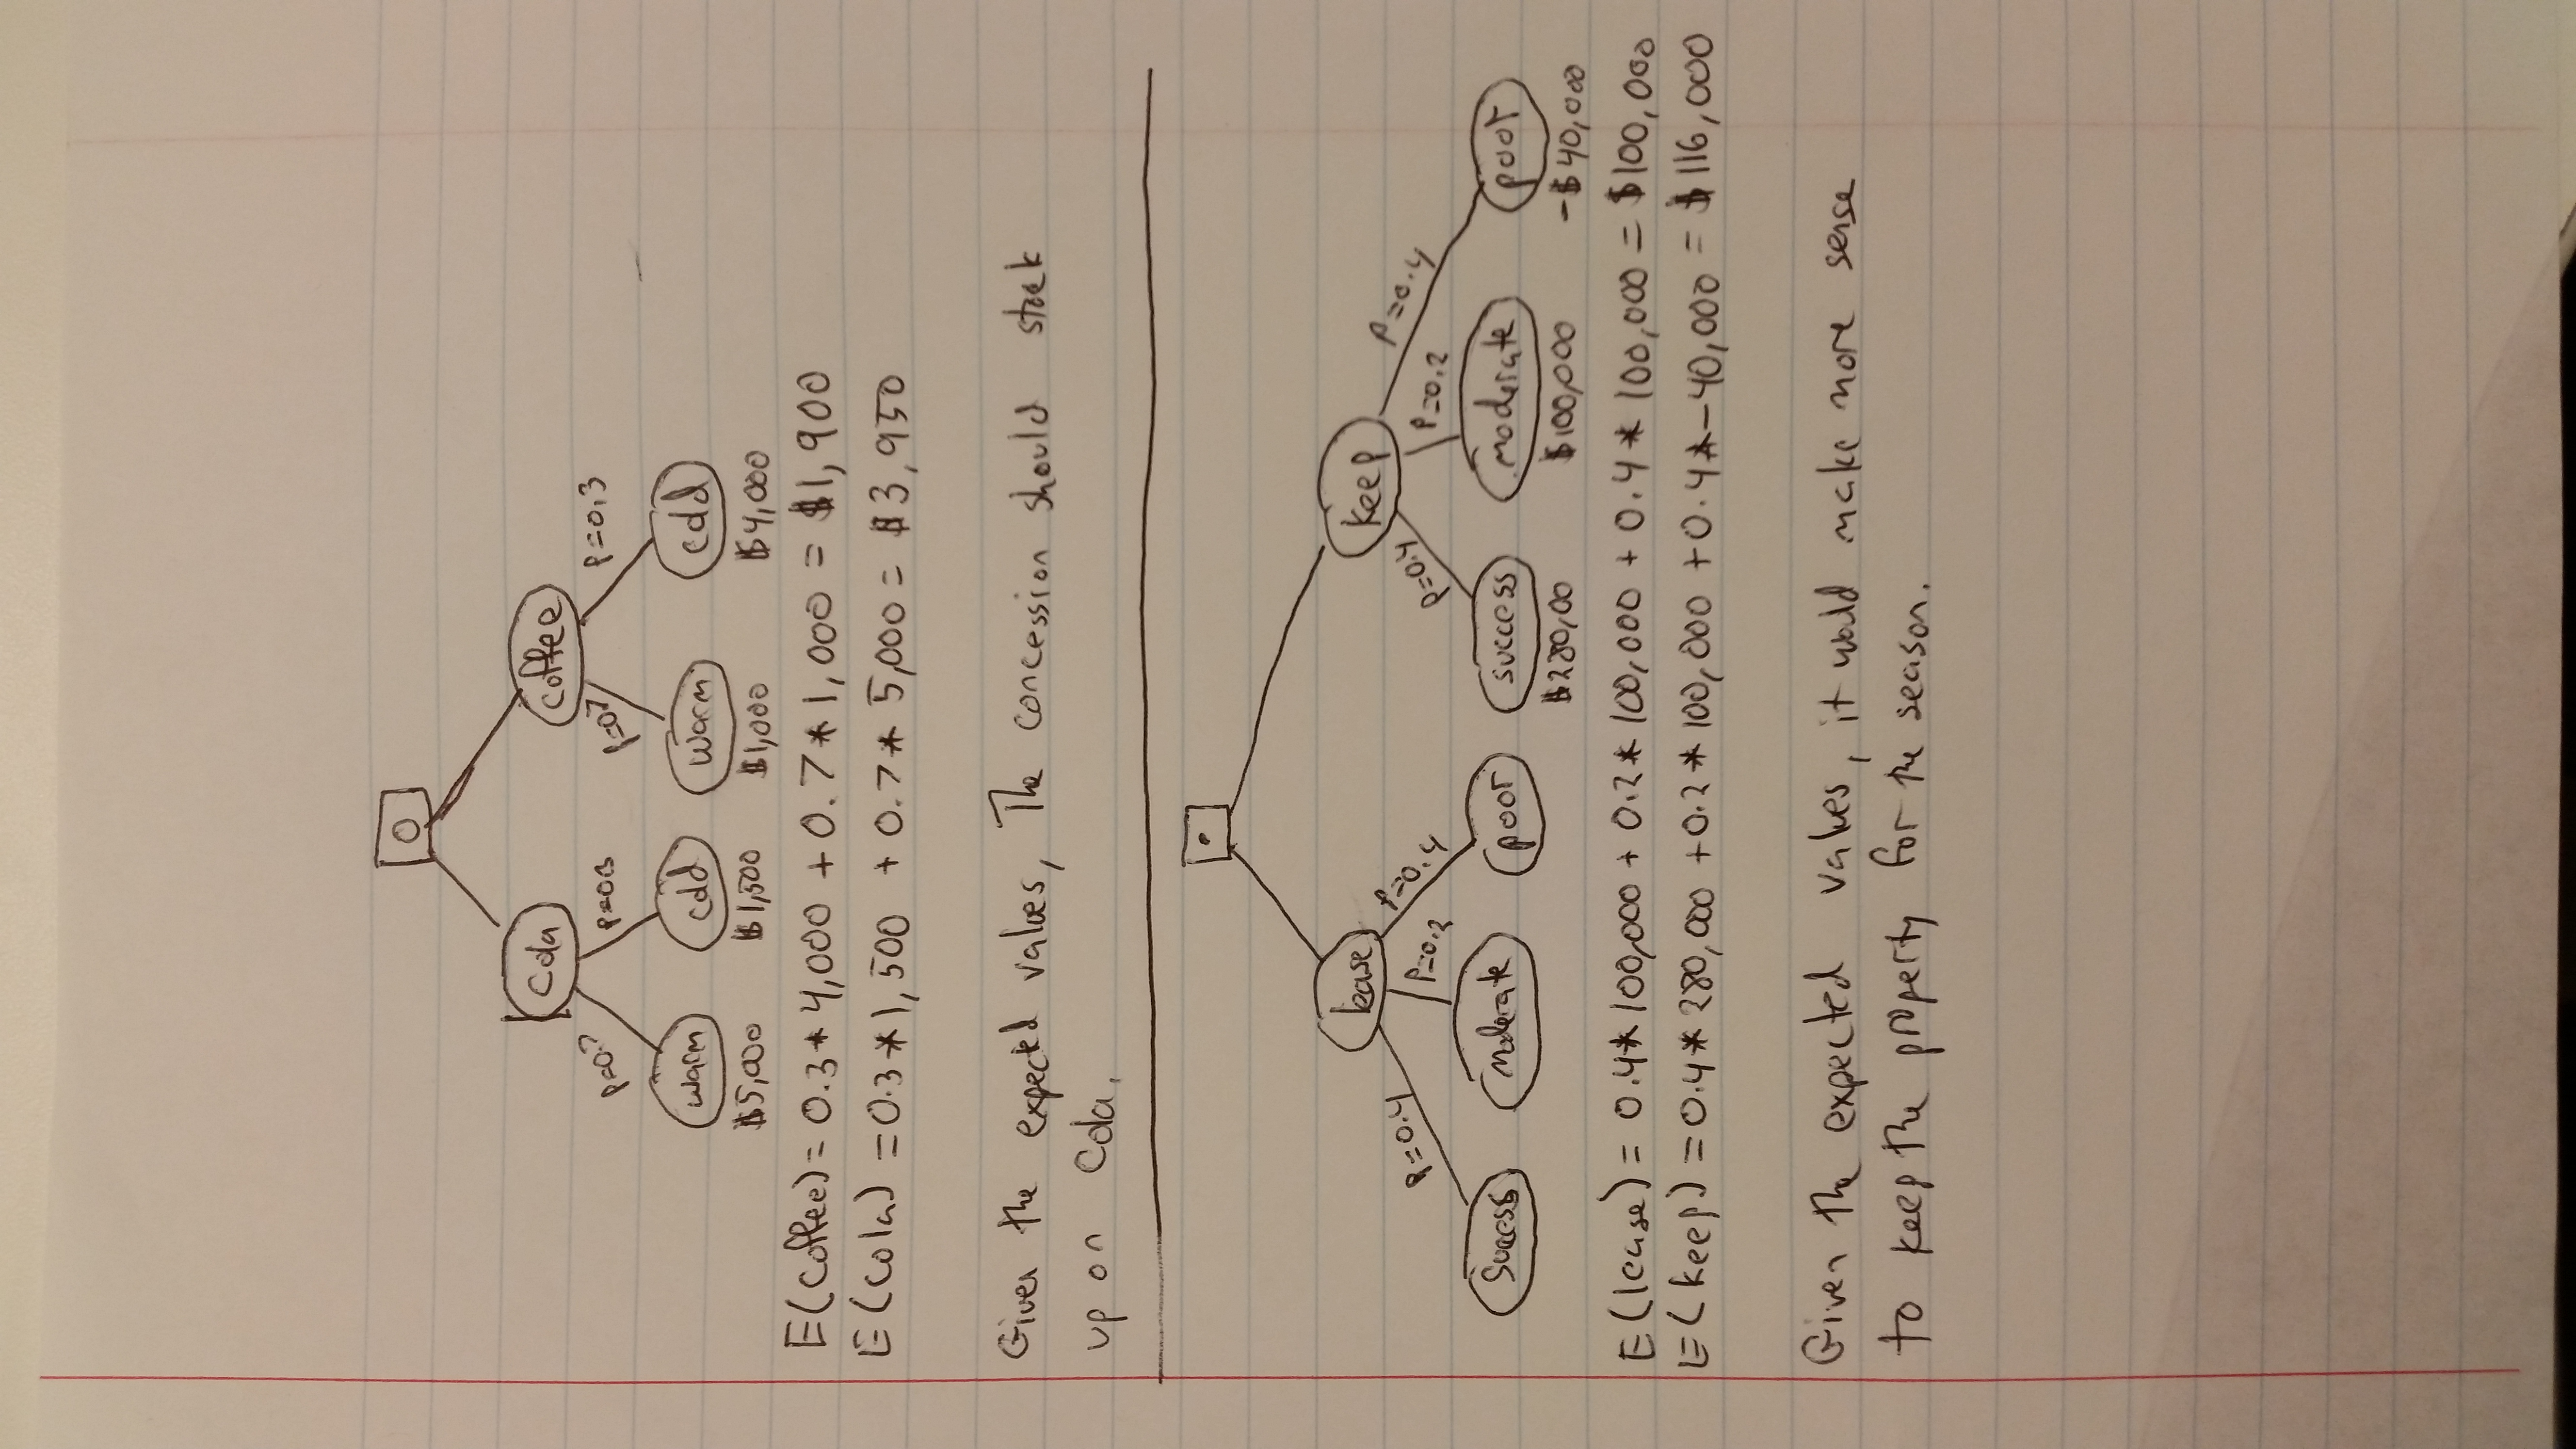 O
Cola coffee
P=0.7 P=0.3 P=0.7 P=0.3
warm cold warm cold
$5,000 $1,500 $1,000 $4,000
E(coffee) = 0.3*4,000 + 0.7*1,000 = $1,900
E(cola) = 0.3*1,500 + 0.7*5,000 = $3,950
Given the expected values, The concession should stock
up on Cola.
lease keep
P=0.4 P=0.2 P=0.4 P=0.4 P=0.2 P=0.4
Success moderate poor success moderate poor
$280,00 $100,000 -$40,000
E(lease) = 0.4*100,000 + 0.2*100,000 + 0.4*100,000 = $100,000
E(keep) = 0.4*280,000 + 0.2*100,000 + 0.4*-40,000 = $116,000
Given the expected values, it would make more sense
to keep the property for the season.